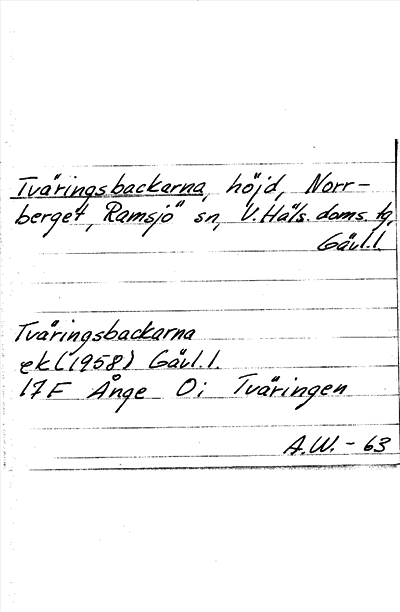 Tväringsbackarna, höjd, Norr-
berget, Ramsjö sn, V. Häls. doms. tg,
Gävl.l.
Tväringsbackarna
ek (1958) Gävl.l.
17F Ånge O; Tväringen
A.W. - 63